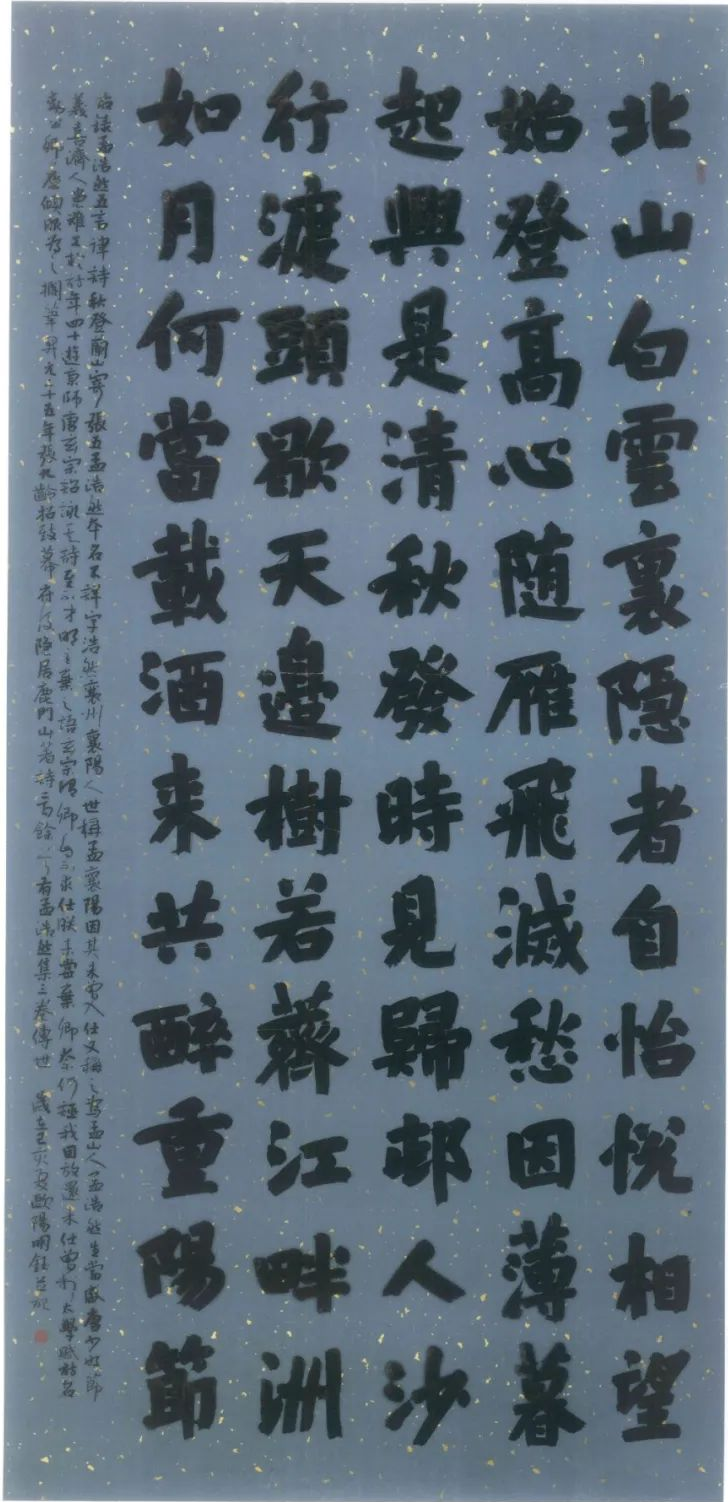 北山白雲裏隐者自怡悦相望
始登髙心随雁飛滅愁因薄暮
起興是清秋發時見歸邨人沙
行渡頭歇天邊樹若薺江畔洲
如月何當載酒来共醉重陽節
臨録孟浩然五言律詩秋登蘭山寄張五孟浩然本名不詳字浩然襄州襄陽人世稱孟襄陽因其未曾入仕又稱之為孟山人孟浩然生當盛唐少好節
義喜濟人患難工於詩年四十遊京師唐玄宗詔詠其詩至不才明主棄之語玄宗謂卿自不求仕朕未嘗棄卿奈何誣我因放還未仕曾於太學賦詩名
動公卿
開元二十五年張九齡招致幕府後隐居鹿門山著詩二百餘首有孟浩然集三卷傳世 歲在己亥 歐陽明鈺